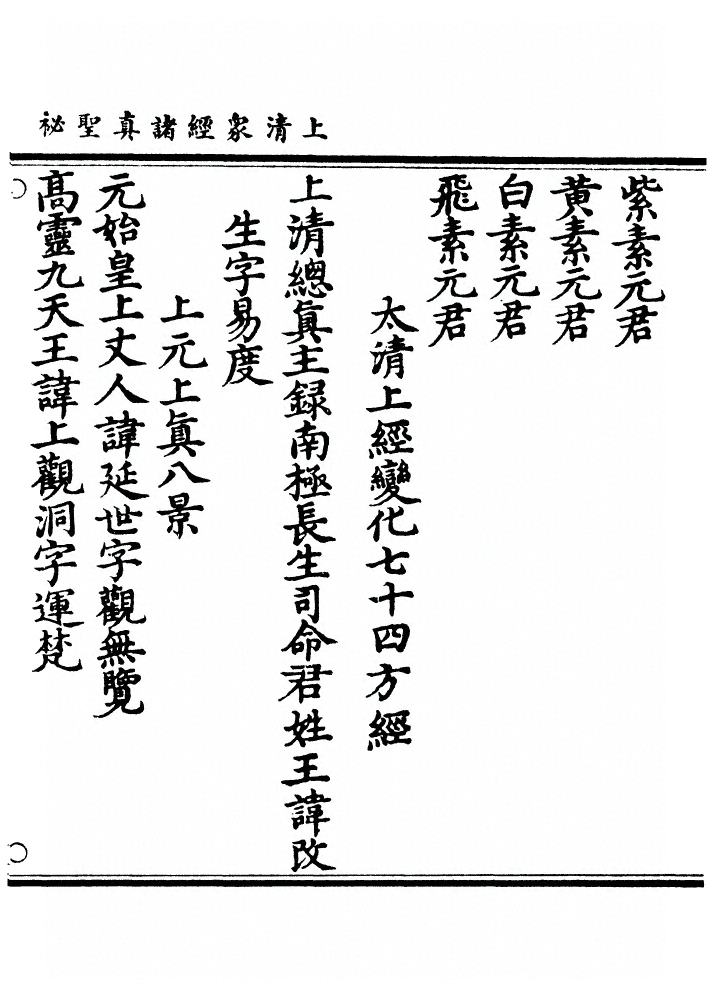 上清衆經諸真聖祕
紫素元君
黄素元君
白素元君
飛素元君
太清上經變化七十四方經
上清總真主録南極長生司命君姓王諱改
生字易度
上元上真八景
元始皇上丈人諱延世字觀無覽
高靈九天王諱上觀洞字運梵